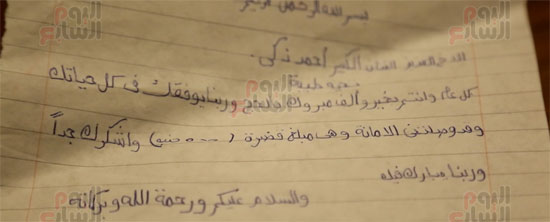 بسم الله الرحمن الرحيم
الفنان الكبير أحمد زكى
تحية طيبة
كل عام وانتم بخير وألف مبروك وربنا يوفقك فى كل حياتك
وقد وصلتنى الامانة وهى مبلغ وقدرة (٥٠٠٠ جنيه) واشكرك جداً
وربنا يبارك فيك
والسلام عليكم ورحمة الله وبركاته
اليوم السابع